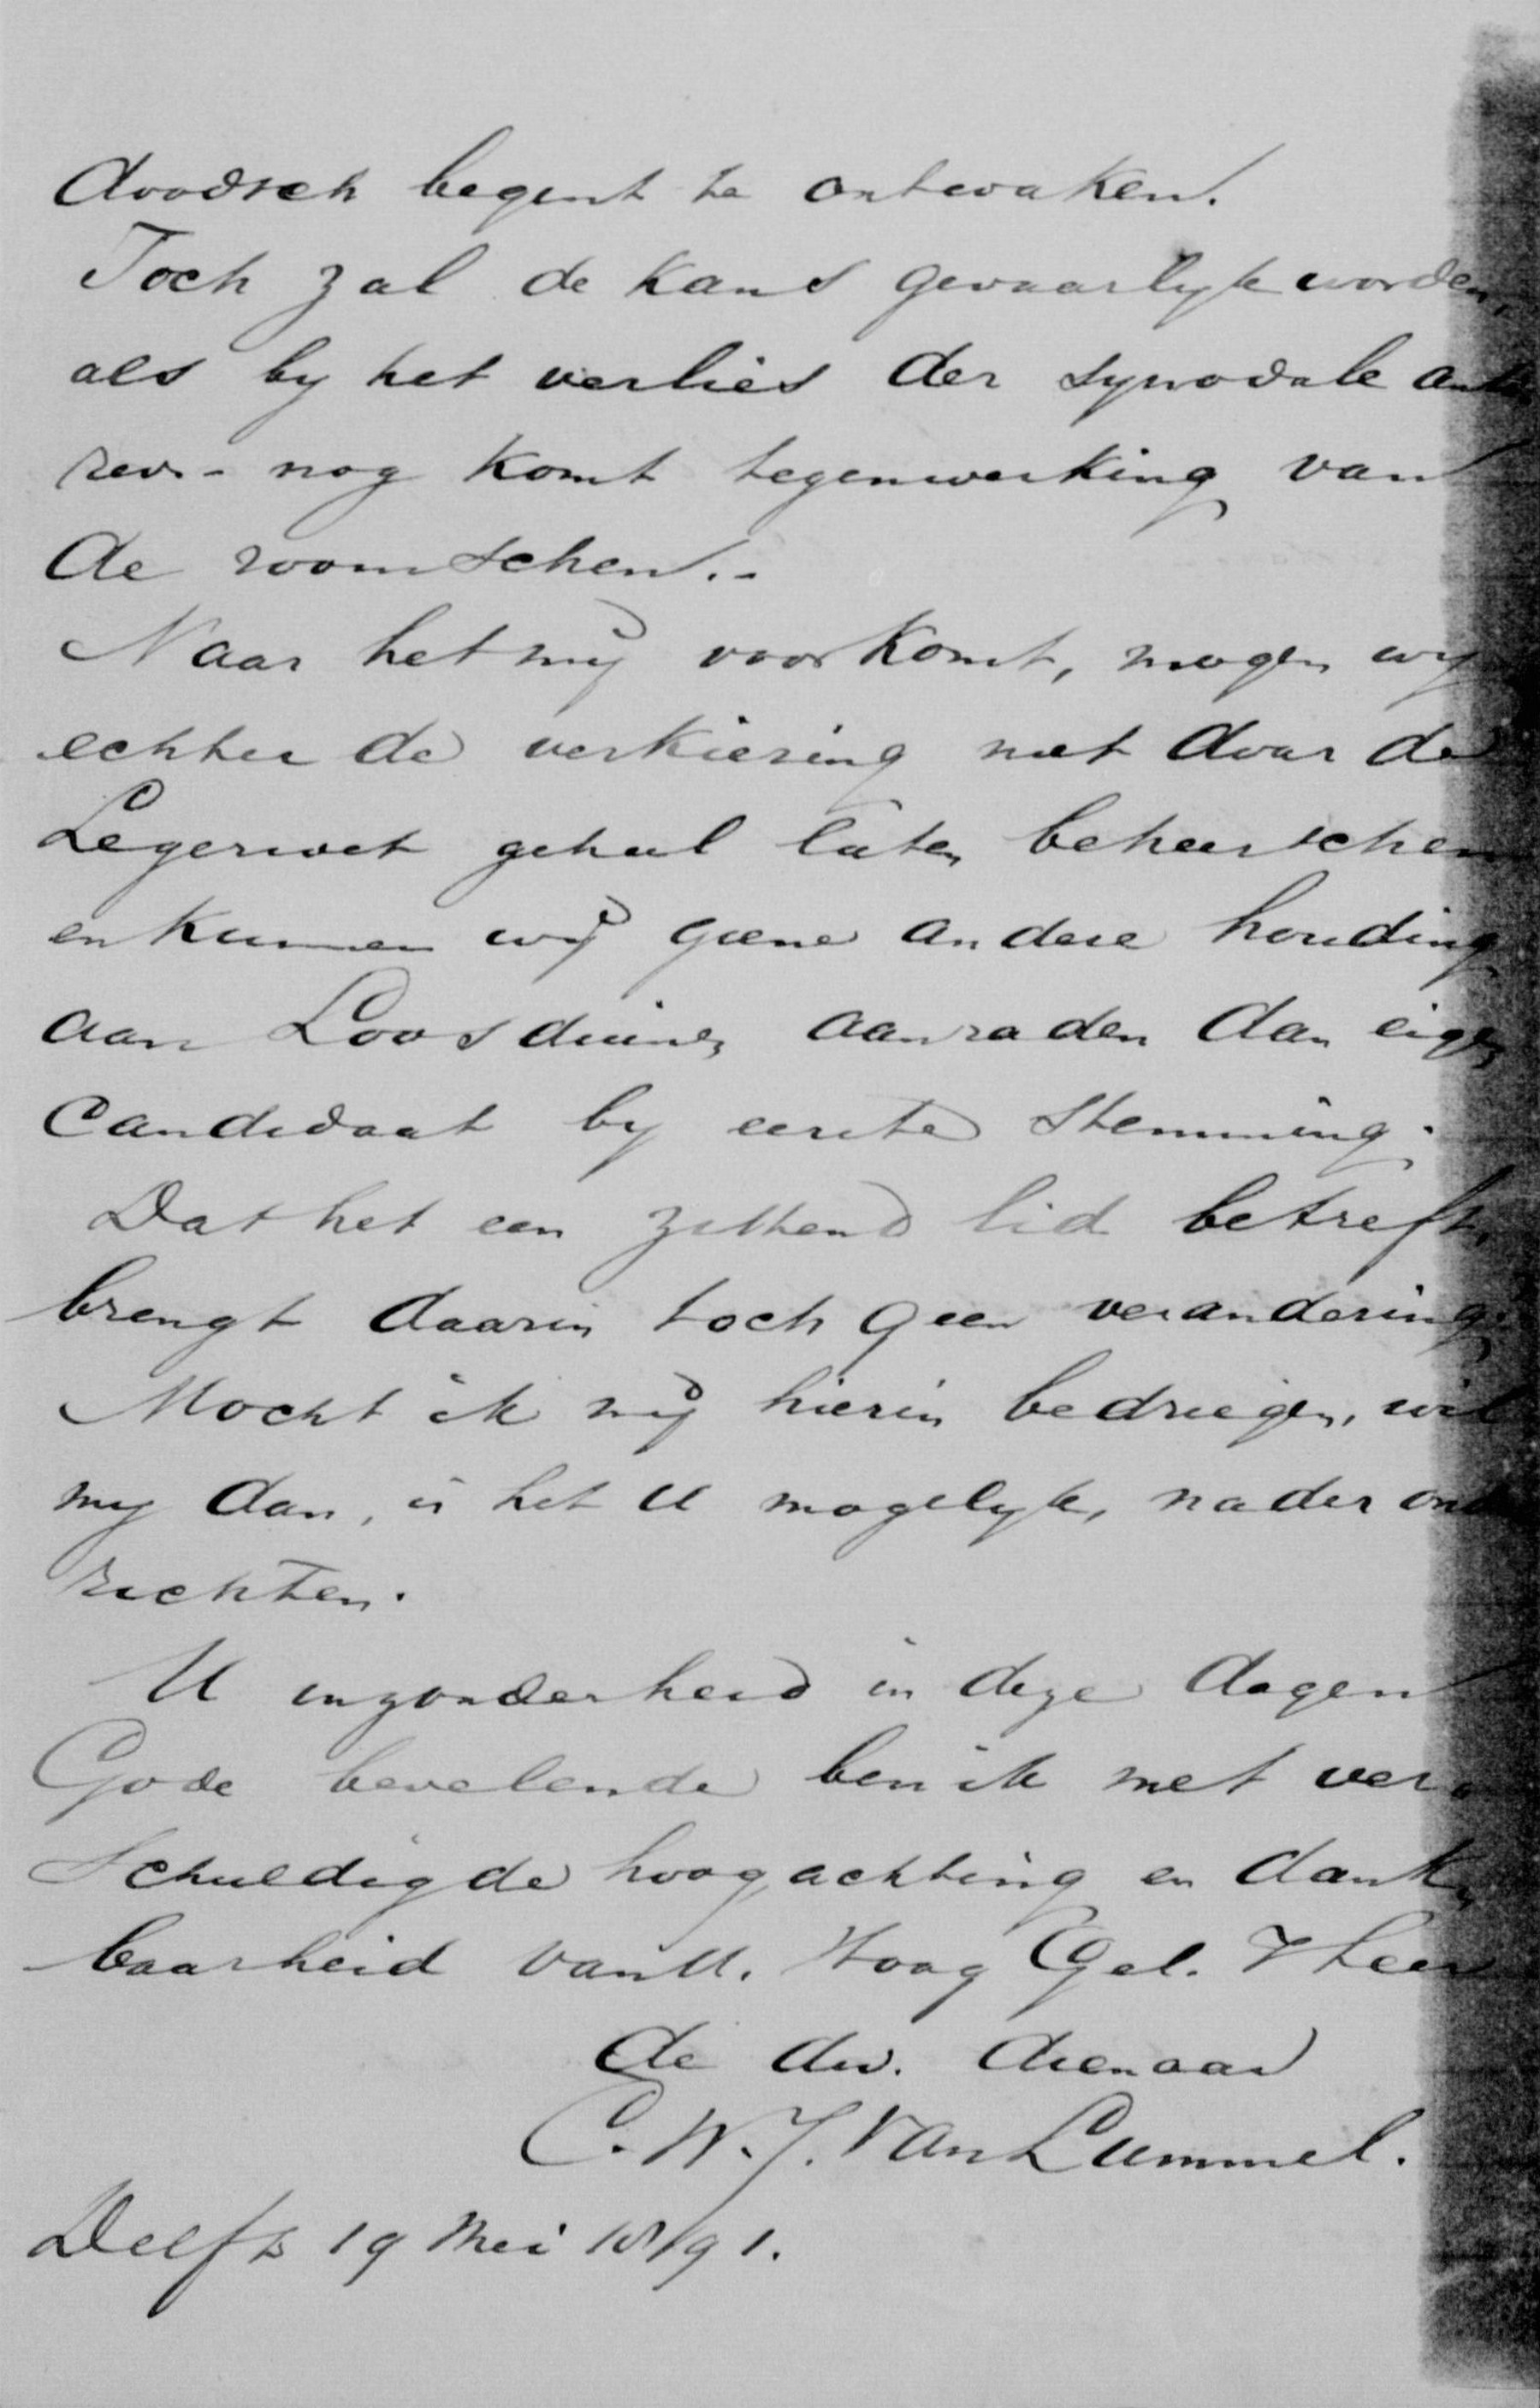 doodsch begint te ontwaken.
Toch zal de kans gevaarlyk worden,
als by het verlies der synodale anti
revs- nog komt tegenwerking van
de roomschen.-
Naar het mij voorkomt, mogen wy
echter de verkiezing niet door de
Legerwet geheel laten beheerschen
en kunnen wij geene andere houding
aan Loosduinen aanraden dan eigen
Candidaat by eerste stemming.
Dat het een zittend lid betreft,
brengt daarin toch geen verandering.
Mocht ik mij hierin bedriegen, wil
my dan, is het U mogelyk, nader onder
richten.
U inzonderheid in deze dagen
Gode bevelende ben ik met ver-
schuldigde hoogachting en dank-
baarheid van U. Hoog Gel. Heer
de dw. dienaar
C. W. J. Van Lummel.
Delft 19 Mei 1891.